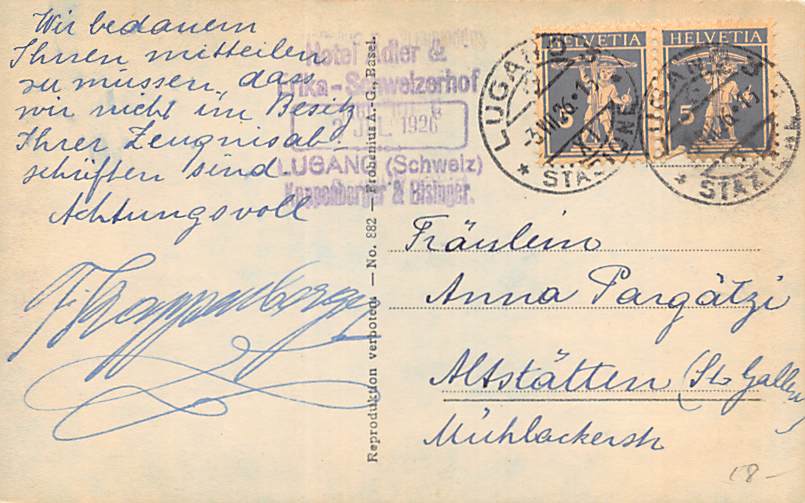 Wir bedauern
Ihnen mitteilen
zu müssen, dass
wir nicht im Besitz
Ihrer Zeugnisab-
schriften sind
Achtungsvoll
Kappenberger
Hotel Adler &
Erika-Schweizerhof
3 JUL. 1926
LUGANO (Schweiz)
Kappenberger & Bisinger.
Reproduktion verboten — No. 882 — Frobenius A.-G., Basel.
HELVETIA
HELVETIA
5
5
LUGANO 3
3.VII.26.-15
XI
STAZIONE
LUGANO 3
STAZIONE
Fräulein
Anna Pargätzi
Altstätten (St Gallen)
Mühlackerstr
18-